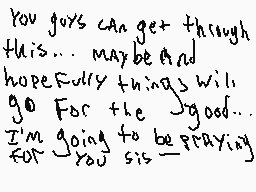 You guys cAn get through
this... mAybe And
hopefully things will
go For the good...
I'm going to be prAying
For you sis